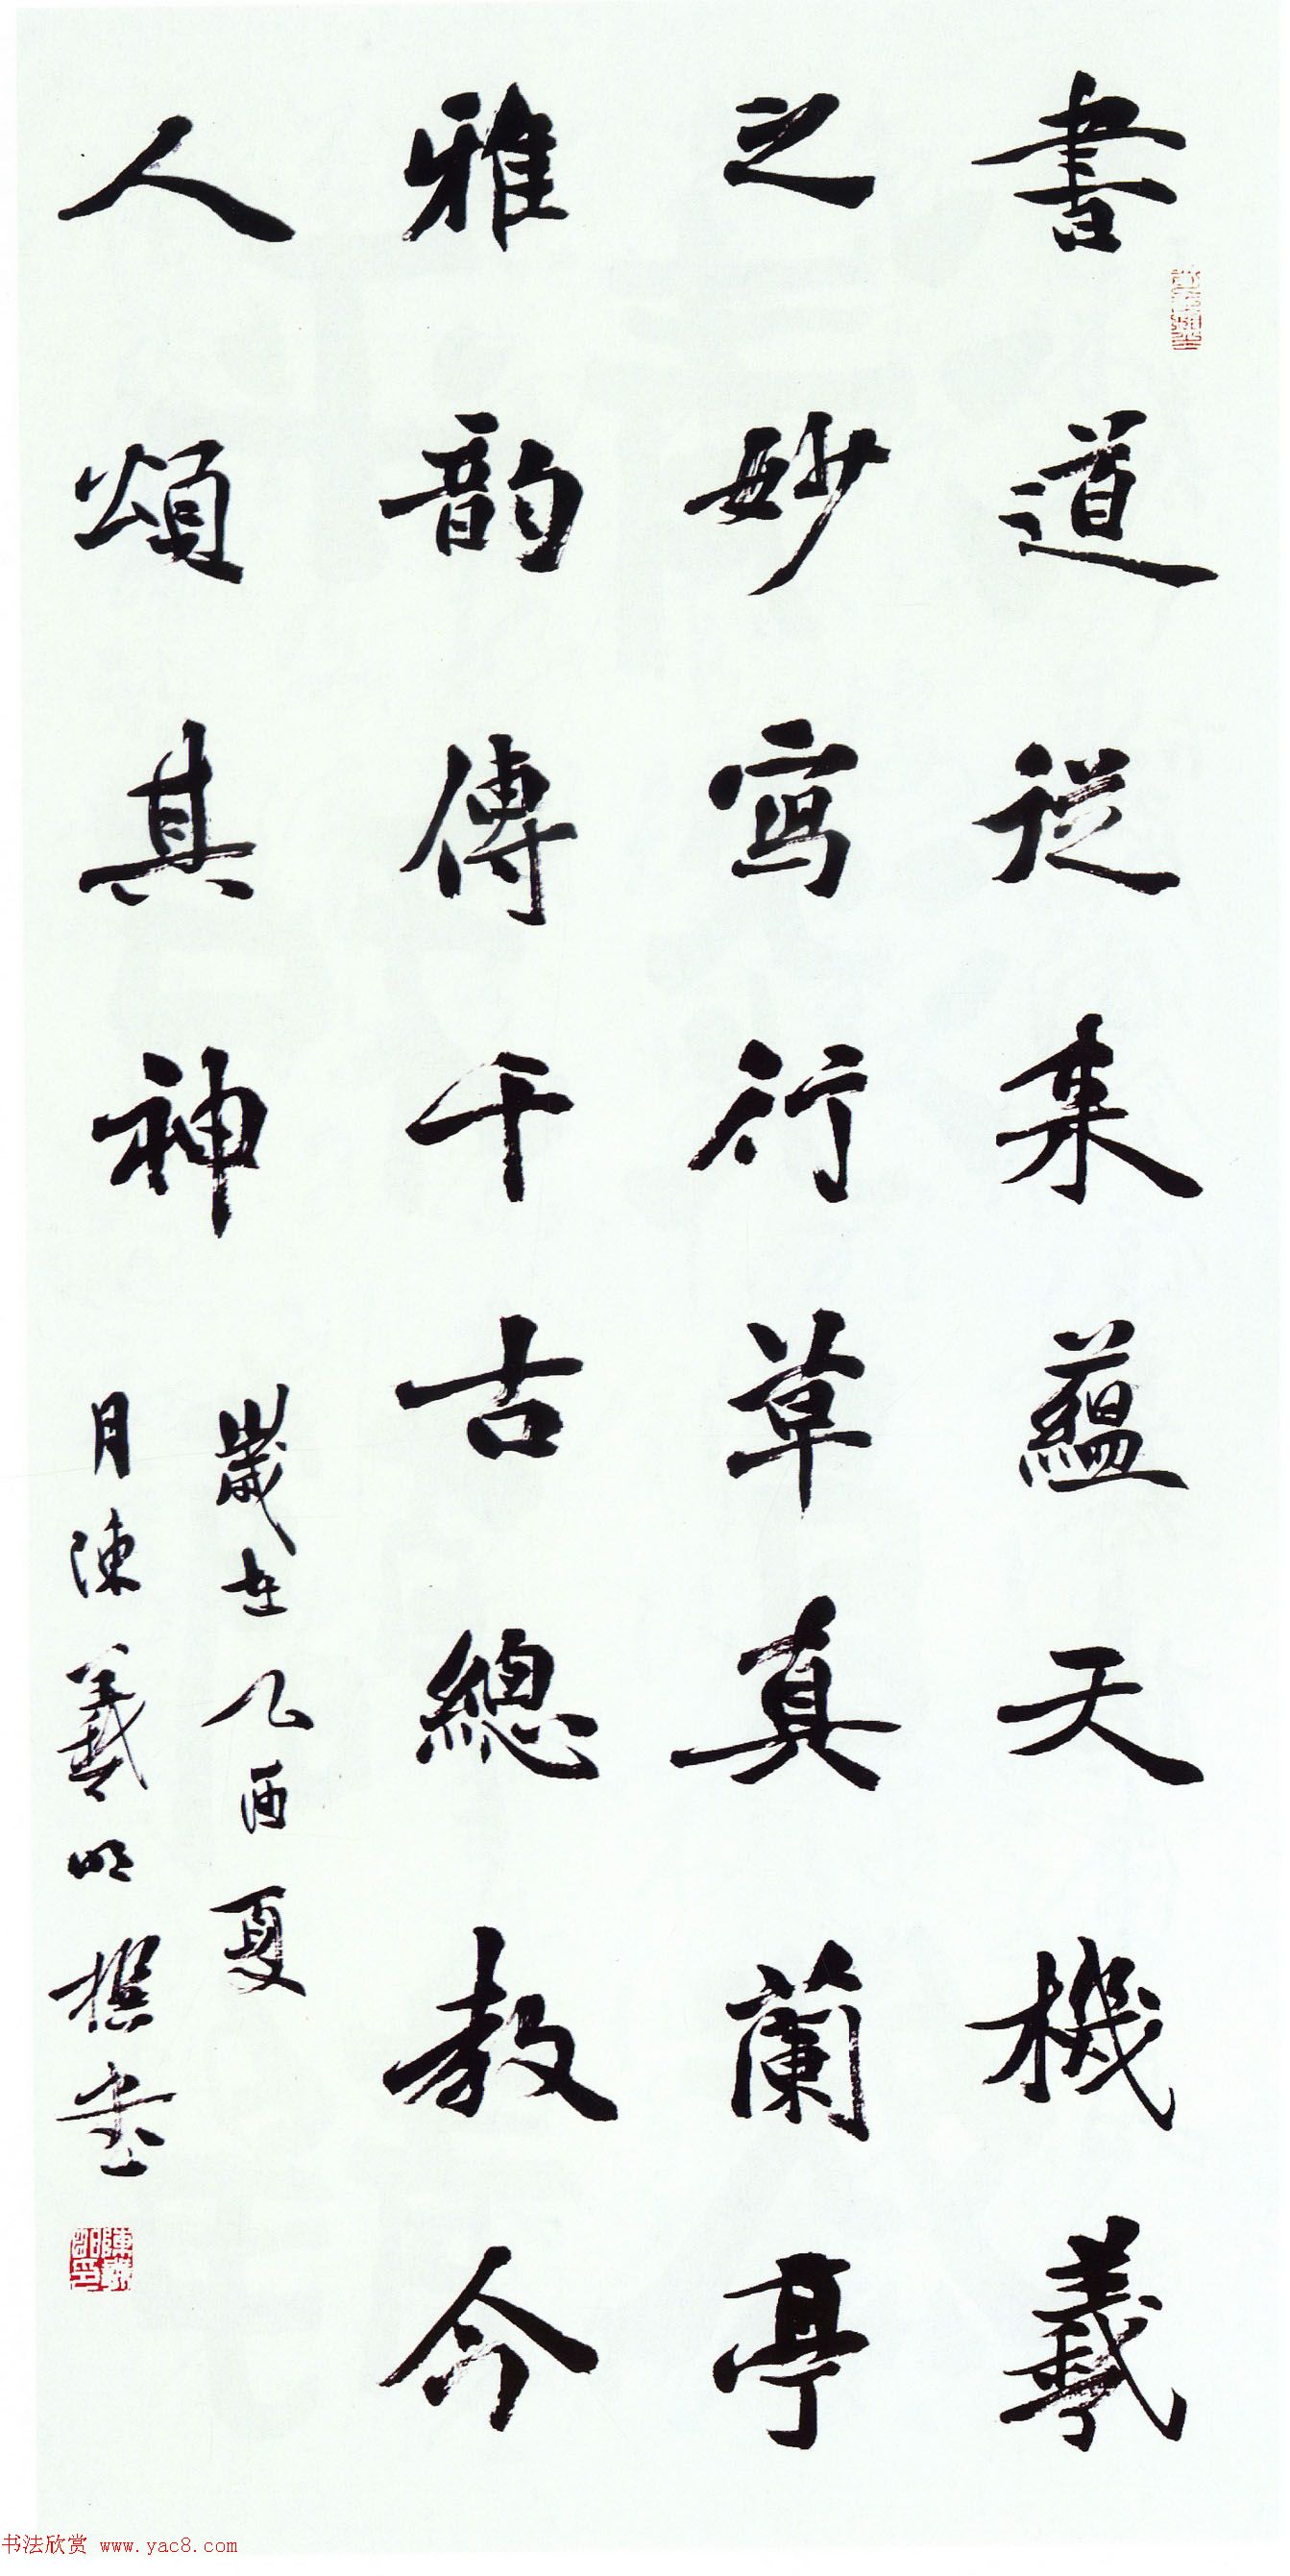 書道從來蘊天機羲
之妙寫行草真蘭亭
雅韵傳千古總教今
人頌其神
歲在乙酉夏
月陳羲明撰書
书法欣赏 www.yac8.com